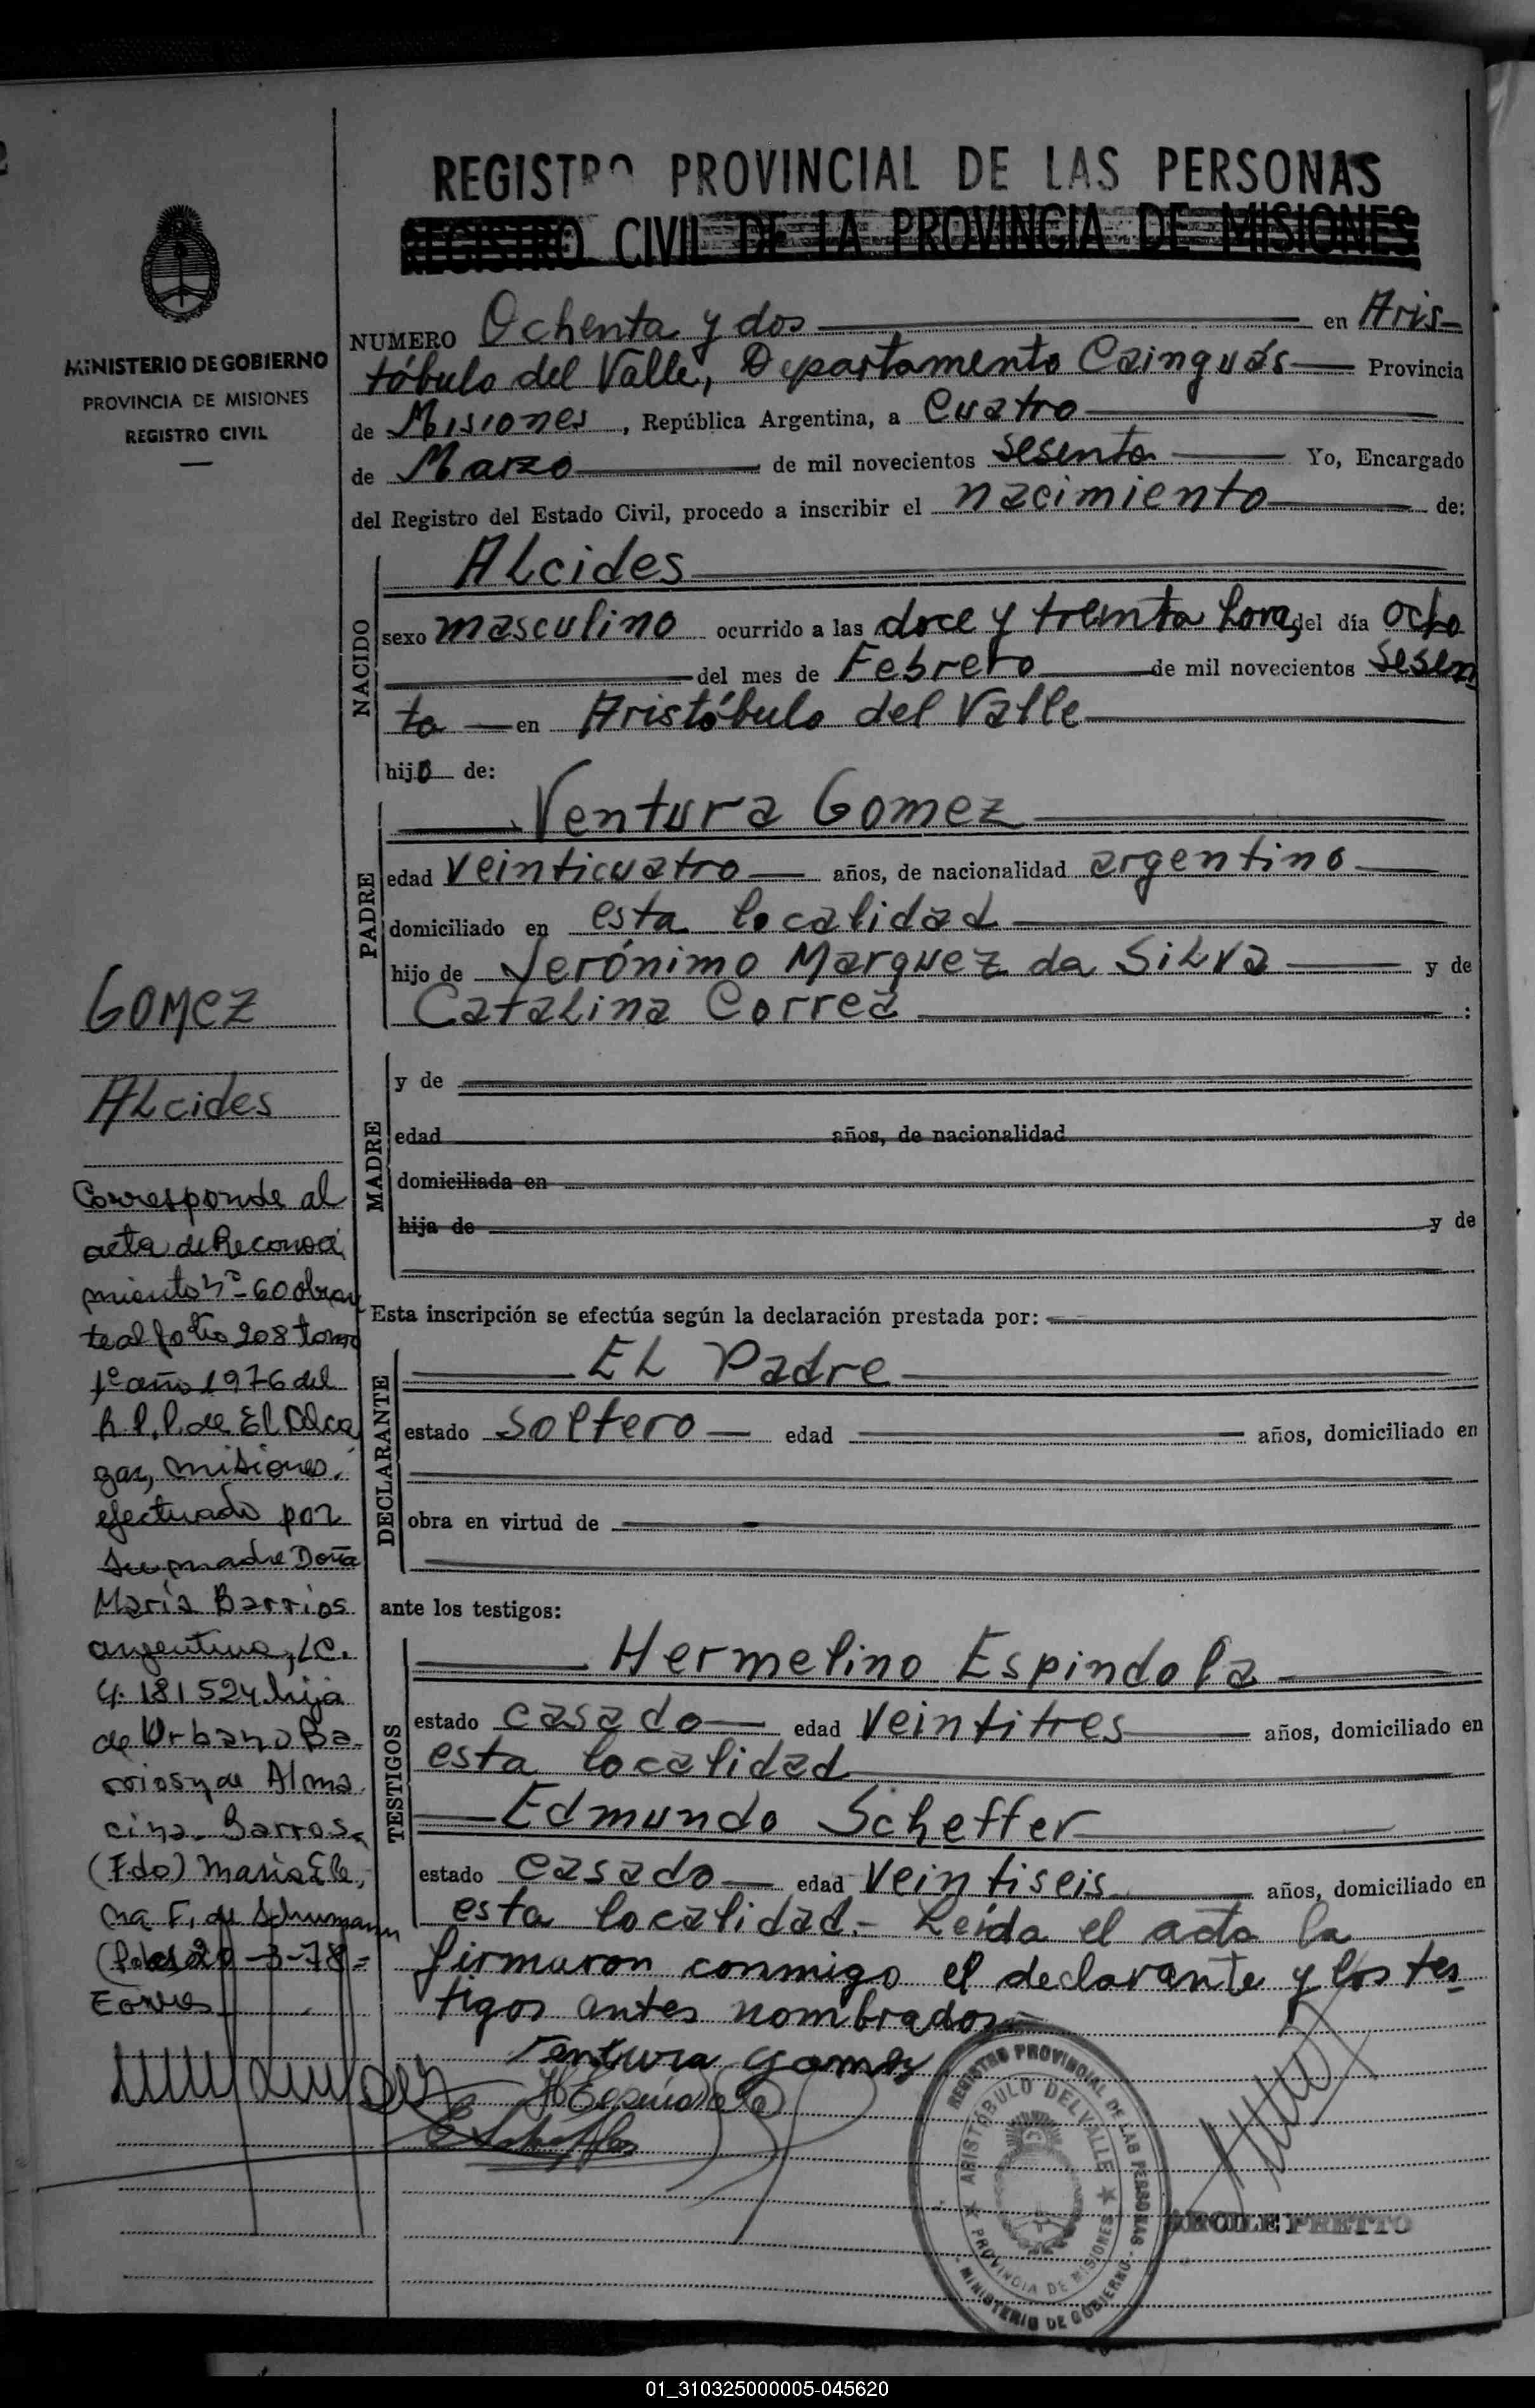 REGISTRO PROVINCIAL DE LAS PERSONAS
REGISTRO CIVIL DE LA PROVINCIA DE MISIONES
MINISTERIO DE GOBIERNO
PROVINCIA DE MISIONES
REGISTRO CIVIL
NUMERO Ochenta y dos en Aris-
tóbulo del Valle, Departamento Cainguás Provincia
de Misiones, República Argentina, a Cuatro
de Marzo de mil novecientos sesenta Yo, Encargado
del Registro del Estado Civil, procedo a inscribir el nacimiento de:
NACIDO
Alcides
sexo masculino ocurrido a las doce y treinta horas del día ocho
del mes de Febrero de mil novecientos sesen
ta en Aristóbulo del Valle
hijo de:
PADRE
Ventura Gomez
edad veinticuatro años, de nacionalidad argentino
domiciliado en esta localidad
hijo de Jerónimo Marquez da Silva y de
Catalina Correa :
MADRE
y de
edad años, de nacionalidad
domiciliada en
hija de y de
Esta inscripción se efectúa según la declaración prestada por:
DECLARANTE
El Padre
estado soltero edad años, domiciliado en
obra en virtud de
ante los testigos:
TESTIGOS
Hermelino Espindola
estado casado edad veintitres años, domiciliado en
esta localidad
Edmundo Scheffer
estado casado edad veintiseis años, domiciliado en
esta localidad.- Leída el acta la
firmaron conmigo el declarante y los tes-
tigos antes nombrados.-
Ventura Gomez
H Espindola
E Scheffer
REGISTRO PROVINCIAL DE LAS PERSONAS
ARISTÓBULO DEL VALLE
PROVINCIA DE MISIONES
MINISTERIO DE GOBIERNO
PRETTO
GOMEZ
Alcides
Corresponde al
acta de Reconoci
miento Nº-60 obran
te al folio 208 tomo
1º año 1976 del
R.P.P. de El Alca
gaz, Misiones.
efectuado por
su madre Doña
María Barrios
argentina, LC.
4.181524 hija
de Urbano Ba-
rrios y de Alma
cina Barros.
(Fdo) María Ele,
na F. de Schumann
20-3-78=
01_310325000005-045620